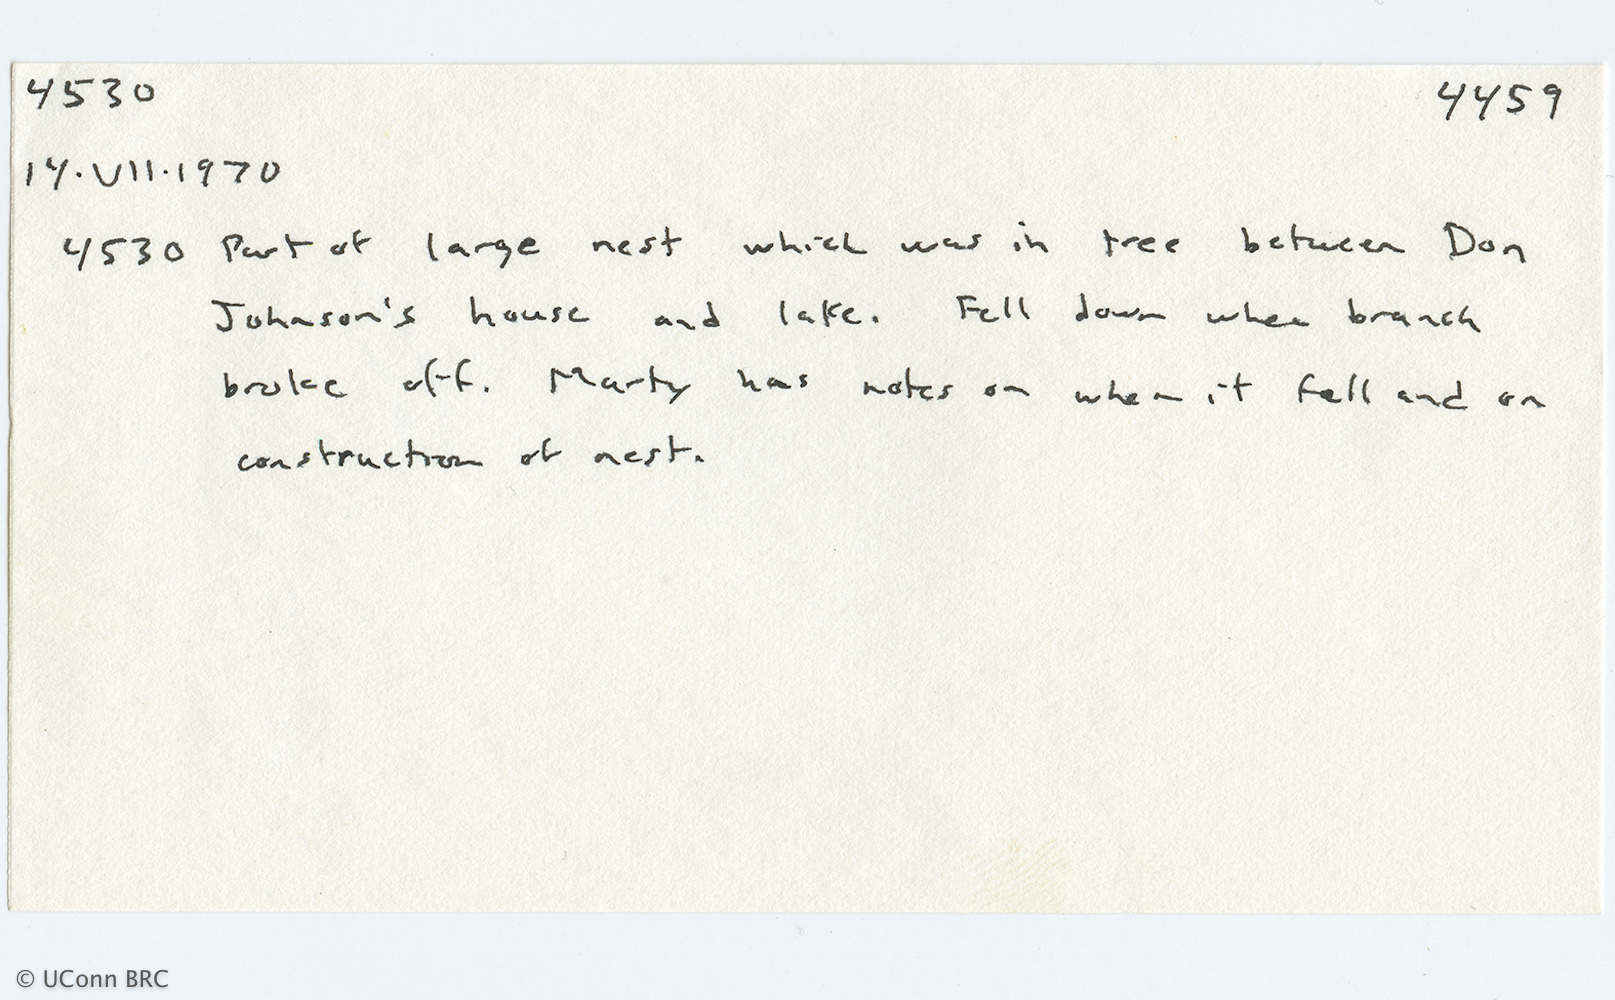 4530 4459
14.VII.1970
4530 Part of large nest which was in tree between Don
Johnson's house and lake. Fell down when branch
broke off. Marty has notes on when it fell and on
construction of nest.
© UConn BRC